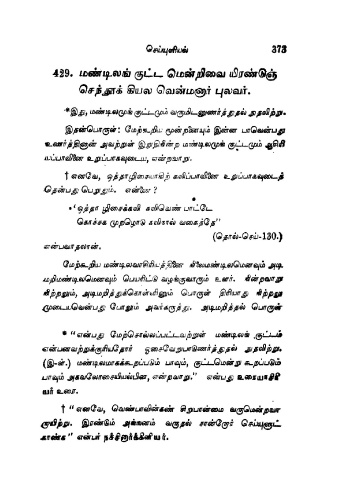 செய்யுளியல் 373
429. மண்டிலங் குட்ட மென்றிவை யிரண்டுஞ்
செந்தூக் கியல வென்மனார் புலவர்.
*இது, மண்டிலமுங் குட்டமும் வருமிடனுணர்த்துதல் நுதலிற்று.
இதன்பொருள்: மேற்கூறிய மூன்றினையும் இன்ன பாவென்பது
உணர்த்தினான் அவற்றுள் இறுதிநின்ற மண்டிலமுங் குட்டமும் ஆசிரி
யப்பாவினை உறுப்பாகவுடைய, என்றவாறு.
† எனவே, ஒத்தாழிசையாகிற் கலிப்பாவினை உறுப்பாகவுடைத்
தென்பது பெறுதும். என்னை?
"ஒத்தா ழிசைக்கலி கலிவெண் பாட்டே
கொச்சக முறழொடு கலிநால் வகைத்தே"
(தொல்-செய்-130.)
என்பவாதலான்.
மேற்கூறிய மண்டிலவாசிரியத்தினை நிலைமண்டிலமெனவும் அடி
மறிமண்டிலமெனவும் பெயரிட்டு வழங்குவாரும் உளர். நின்றவாறு
நிற்றலும், அடிமறித்துக்கொள்ளினும் பொருள் திரியாது நிற்றலு
முடையவென்பது போலும் அவர்கருத்து. அடிமறித்தல் பொருள்
* "என்பது மேற்சொல்லப்பட்டவற்றுள் மண்டிலங் குட்டம்
என்பனவற்றுக்குரியதோர் ஓசைவேறுபாடுணர்த்துதல் நுதலிற்று.
(இ-ள்.) மண்டிலமாகக்கூறப்படும் பாவும், குட்டமென்று கூறப்படும்
பாவும் அகவலோசையியல்பின, என்றவாறு." என்பது உரையாசிரி
யர் உரை.
† "எனவே, வெண்பாவின்கண் சிறுபான்மை வருமென்றவா
றாயிற்று. இரண்டும் அங்ஙனம் வருதல் சான்றோர் செய்யுளுட்
காண்க" என்பர் நச்சினார்க்கினியர்.